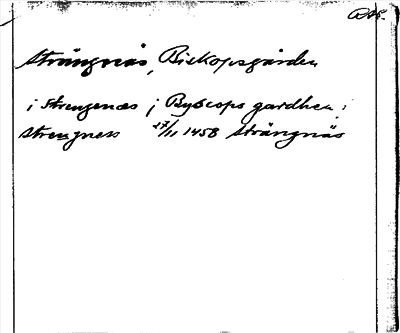 Strängnäs, Biskopsgården
i Strengenæs j Byscops gardhen i
strengness 27/11 1458 Strängnäs